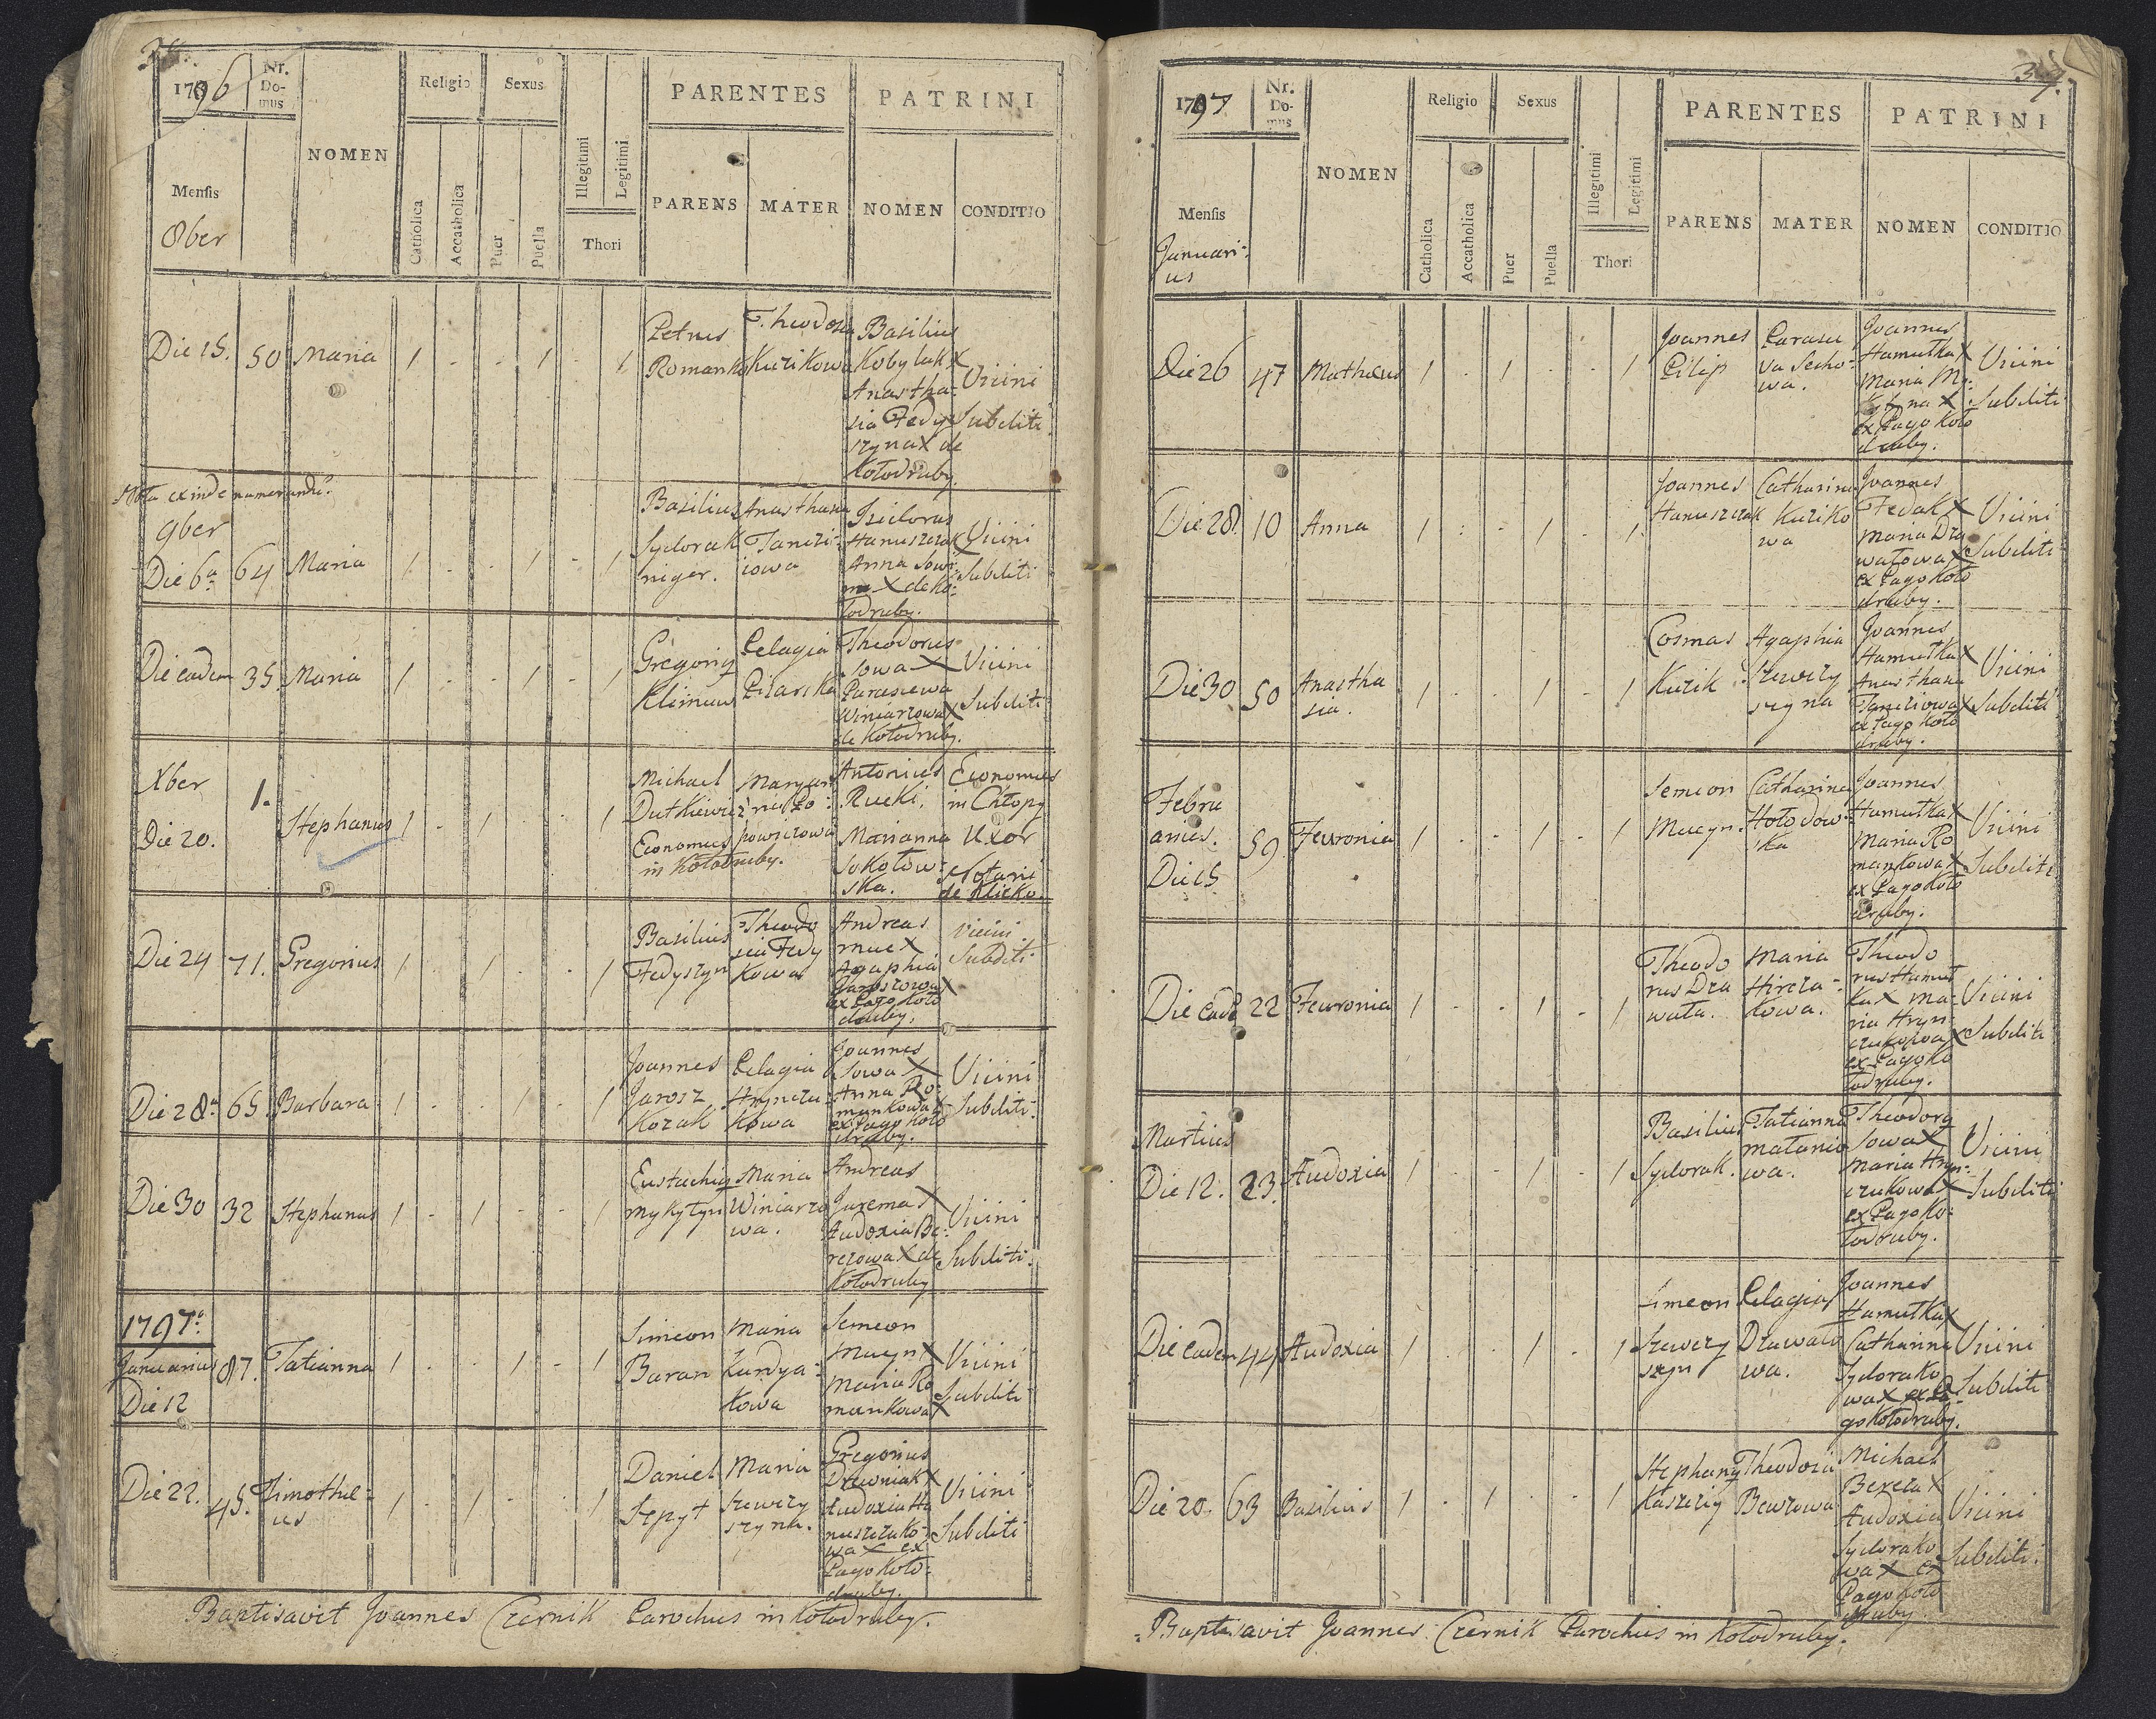 1796
Nr.
Do-
mus
NOMEN
Religio
Sexus
Illegitimi
Legitimi
PARENTES
PATRINI
Mensis
8ber
Catholica
Accatholica
Puer
Puella
Thori
PARENS
MATER
NOMEN
CONDITIO
Die 15. 50 Maria 1 - - 1 - 1
Petrus
Romanko
Theodosia
Kuzikowa
Basilius
Kobylak X
Anastha-
sia Fedy
szyna X de
Kołodruby.
Vicini
Subditi
Nota exinde numerandi.
9ber
Die 6a 64 Maria 1 - - 1 - 1
Basilius
Sydorak
niger.
Anasthasia
Taneczi-
iowa
Isidorus
Hanuszczak X
Anna Sowi-
na X de Ko-
łodruby.
Vicini
Subditi
Die eadem 35. Maria 1 - - 1 - 1
Gregoriy
Klimuw
Pelagia
Pilarska
Theodorus
Sowa X
Parasiewa
Winiarzowa X
de Kołodruby.
Vicini
Subditi
Xber
Die 20.
1.
Stephanus 1 - 1 - - 1
Michael
Dutkiewicz
Economus
in Kołodruby.
Antonius
Rucki,
Marianna
Sokołow-
ska.
Economus
in Chłopy
Uxor
Notarii
de Klicko.
Die 24 71. Gregorius 1 - 1 - - 1
Basilius
Fedyszyn
Theodo
sia Fedy
kowa
Andreas
Muc X
Agaphia
Jaroszowa X
ex Pago Koło
druby.
Vicini
Subditi
Die 28a 65. Barbara 1 - - 1 - 1
Joannes
Jarosz
Kozak
Pelagia
Hryncza-
kowa
Joannes
Sowa X
Anna Ro-
mankowa X
ex Pago Koło
druby.
Vicini
Subditi
Die 30 32 Stephanus 1 - 1 - - 1
Eustachiy
Mykytyn
Maria
Winiarzo
wa.
Andreas
Jarema X
Audoxia Be-
rezowa X de
Kołodruby
Vicini
Subditi
1797a
Januarius
Die 12
87. Tatianna 1 - - 1 - 1
Simeon
Baran
Maria
Kundya-
kowa
Semeon
Mucyn X
Maria Ro
mankowa X
Vicini
Subditi
Die 22. 45. Timothe-
us
1 - 1 - - 1
Daniel
Szpyt
Maria
Szewczy
szyna.
Gregorius
Drewniak X
Audoxia Ha
nuszczako-
wa X ex
Pago Koło-
druby.
Vicini
Subditi
Baptisavit Joannes Czernik Parochus in Kołodruby.
1797
Nr.
Do-
mus
NOMEN
Religio
Sexus
Illegitimi
Legitimi
PARENTES
PATRINI
Mensis
Januari-
us
Catholica
Accatholica
Puer
Puella
Thori
PARENS
MATER
NOMEN
CONDITIO
Die 26 47 Matheus 1 - 1 - - 1
Joannes
Pilip
Parasce
va Secho-
wa.
Joannes
Hamutka X
Maria My-
X
ex Pago Koło
druby.
Vicini
Subditi
Die 28. 10 Anna 1 - - 1 - 1
Joannes
Hanuszczak
Catharina
Kuziko
wa
Joannes
Fedak X
Maria Dra
watowa X
ex Pago Koło
druby.
Vicini
Subditi
Die 30 50 Anastha
sia.
1 - - 1 - 1
Cosmas
Kuzik
Agaphia
Szewczy
szyna
Joannes
Hamutka X
Anasthasia
Taneziowa X
ex Pago Koło
druby.
Vicini
Subditi
Febru
arius.
Die 15
59 Feuronia 1 - - 1 - 1
Semeon
Mucyn.
Catharina
Hołodow-
ska
Joannes
Hamutka X
Maria Ro
mankowa X
ex Pago Koło
druby.
Vicini
Subditi
Die Eade 22 Feuronia 1 - - 1 - 1
Theodo
rus Dra
wata.
Maria
Hircza-
kowa.
Theodo
rus Hamut
ka X Ma-
ria Hryn-
czukowa X
ex Pago Ko
łodruby.
Vicini
Subditi
Martius
Die 12. 23. Audoxia 1 - - 1 - 1
Basilius
Sydorak.
Tatianna
Matanio
wa.
Theodorg
Sowa X
Maria Hryn-
czukowa X
ex Pago Ko-
łodruby.
Vicini
Subditi
Die Eadem 44 Audoxia 1 - - 1 - 1
Simeon
Szewczy
szyn
Pelagia
Drawato
wa.
Joannes
Hamutka X
Catharina
Sydorako
wa X ex Pa-
go Kołodruby.
Vicini
Subditi
Die 20. 63 Basilius 1 - 1 - - 1
Stephang
Kaszciy
Theodozia
Bewzowa
Michael
Bereza X
Audoxia
Sydorako
wa X ex
Pago Koło
druby
Vicini
Subditi
Baptisavit Joannes Czernik Parochus in Kołodruby.